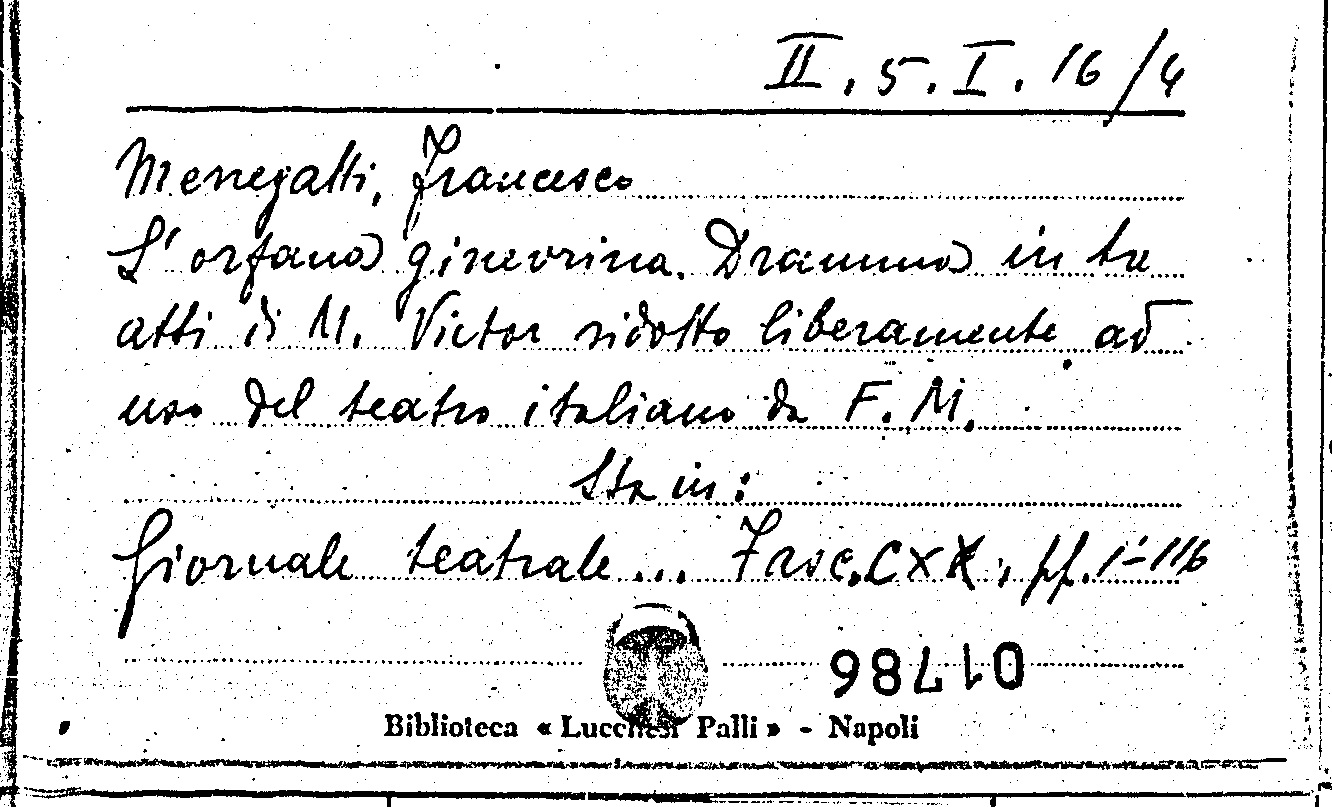 II. 5. I. 16/4
Menegatti, Francesco
L'orfana ginevrina. Dramma in tre
atti di M. Victor ridotto liberamente ad
uso del teatro italiano da F. M.
Sta in:
Giornale teatrale ... Fasc. CXX, pp. 1-116
011786
Biblioteca « Lucchesi Palli » - Napoli